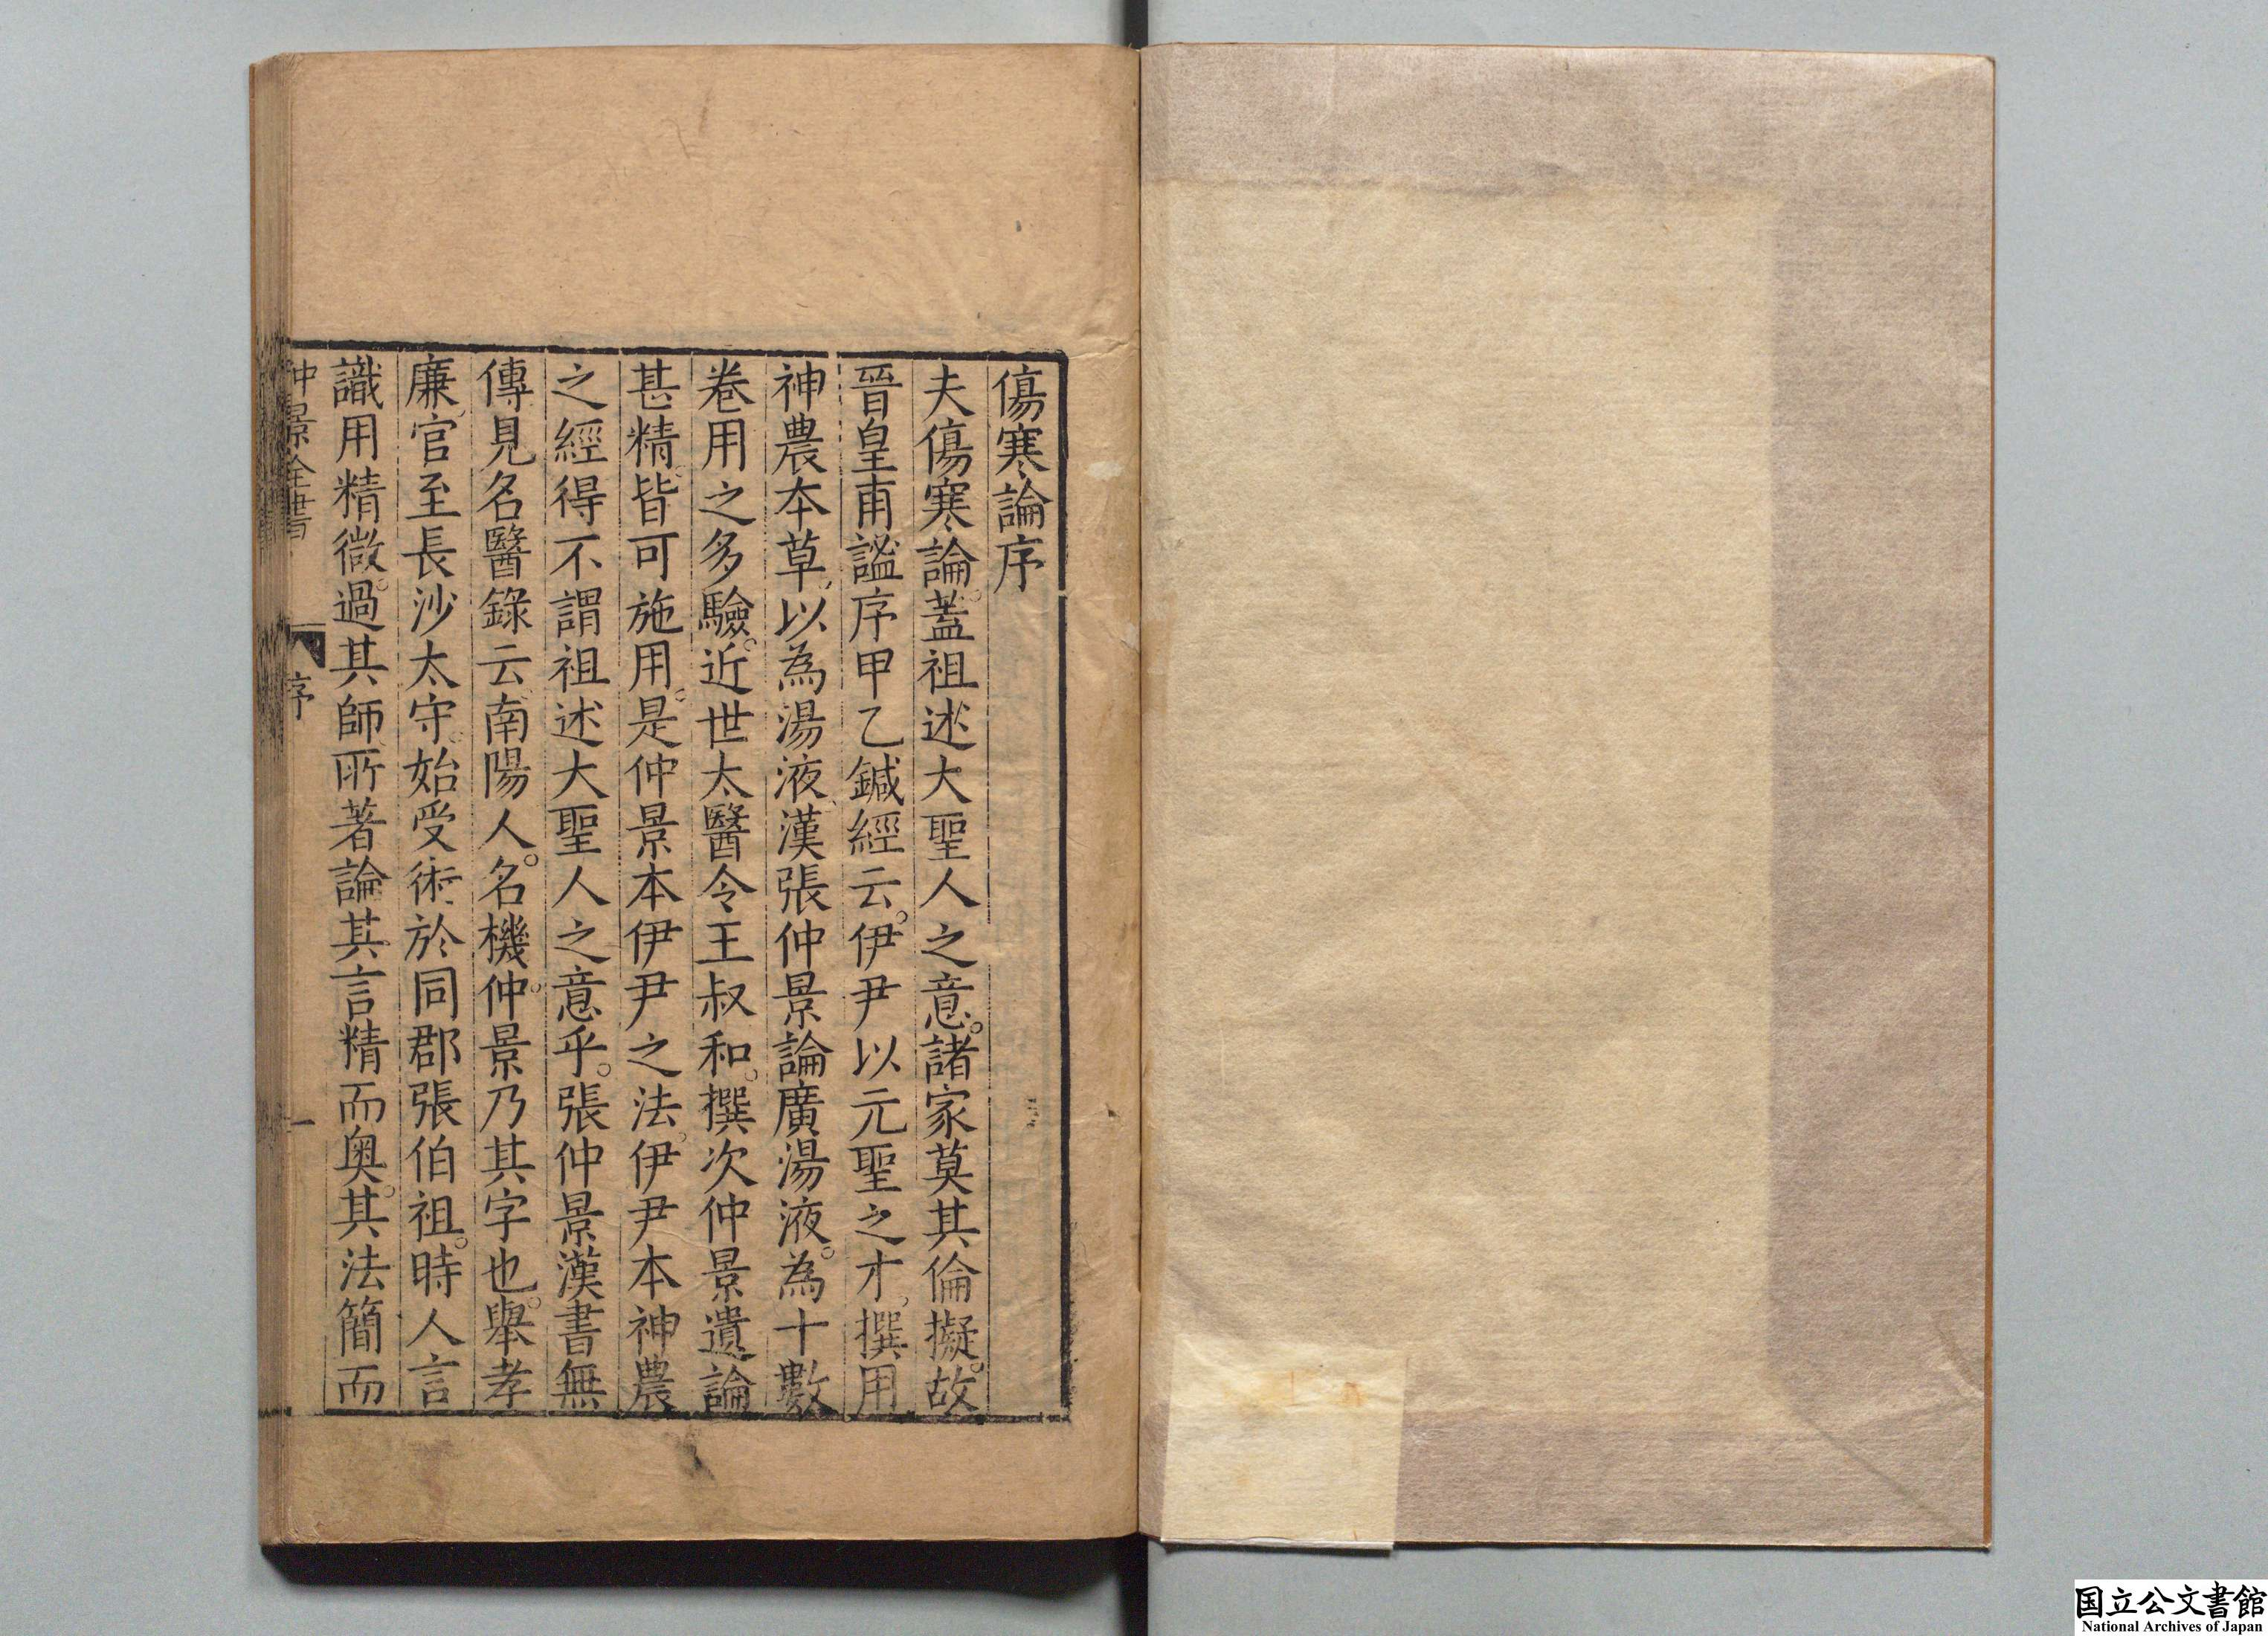 傷寒論序
夫傷寒論。蓋祖述大聖人之意。諸家莫其倫擬。故
晉皇甫謐序甲乙鍼經云。伊尹以元聖之才。撰用
神農本草、以為湯液、漢張仲景論廣湯液。為十數
卷用之多驗。近世太醫令王叔和。撰次仲景遺論
甚精。皆可施用。是仲景本伊尹之法。伊尹本神農
之經得不謂祖述大聖人之意乎。張仲景漢書無
傳見名醫錄云南陽人。名機仲。景乃其字也。舉孝
廉、官至長沙太守。始受術於同郡張伯祖。時人言
識用精微。過其師所著論其言精而奧。其法簡而
仲景全書
序
一
国立公文書館
National Archives of Japan